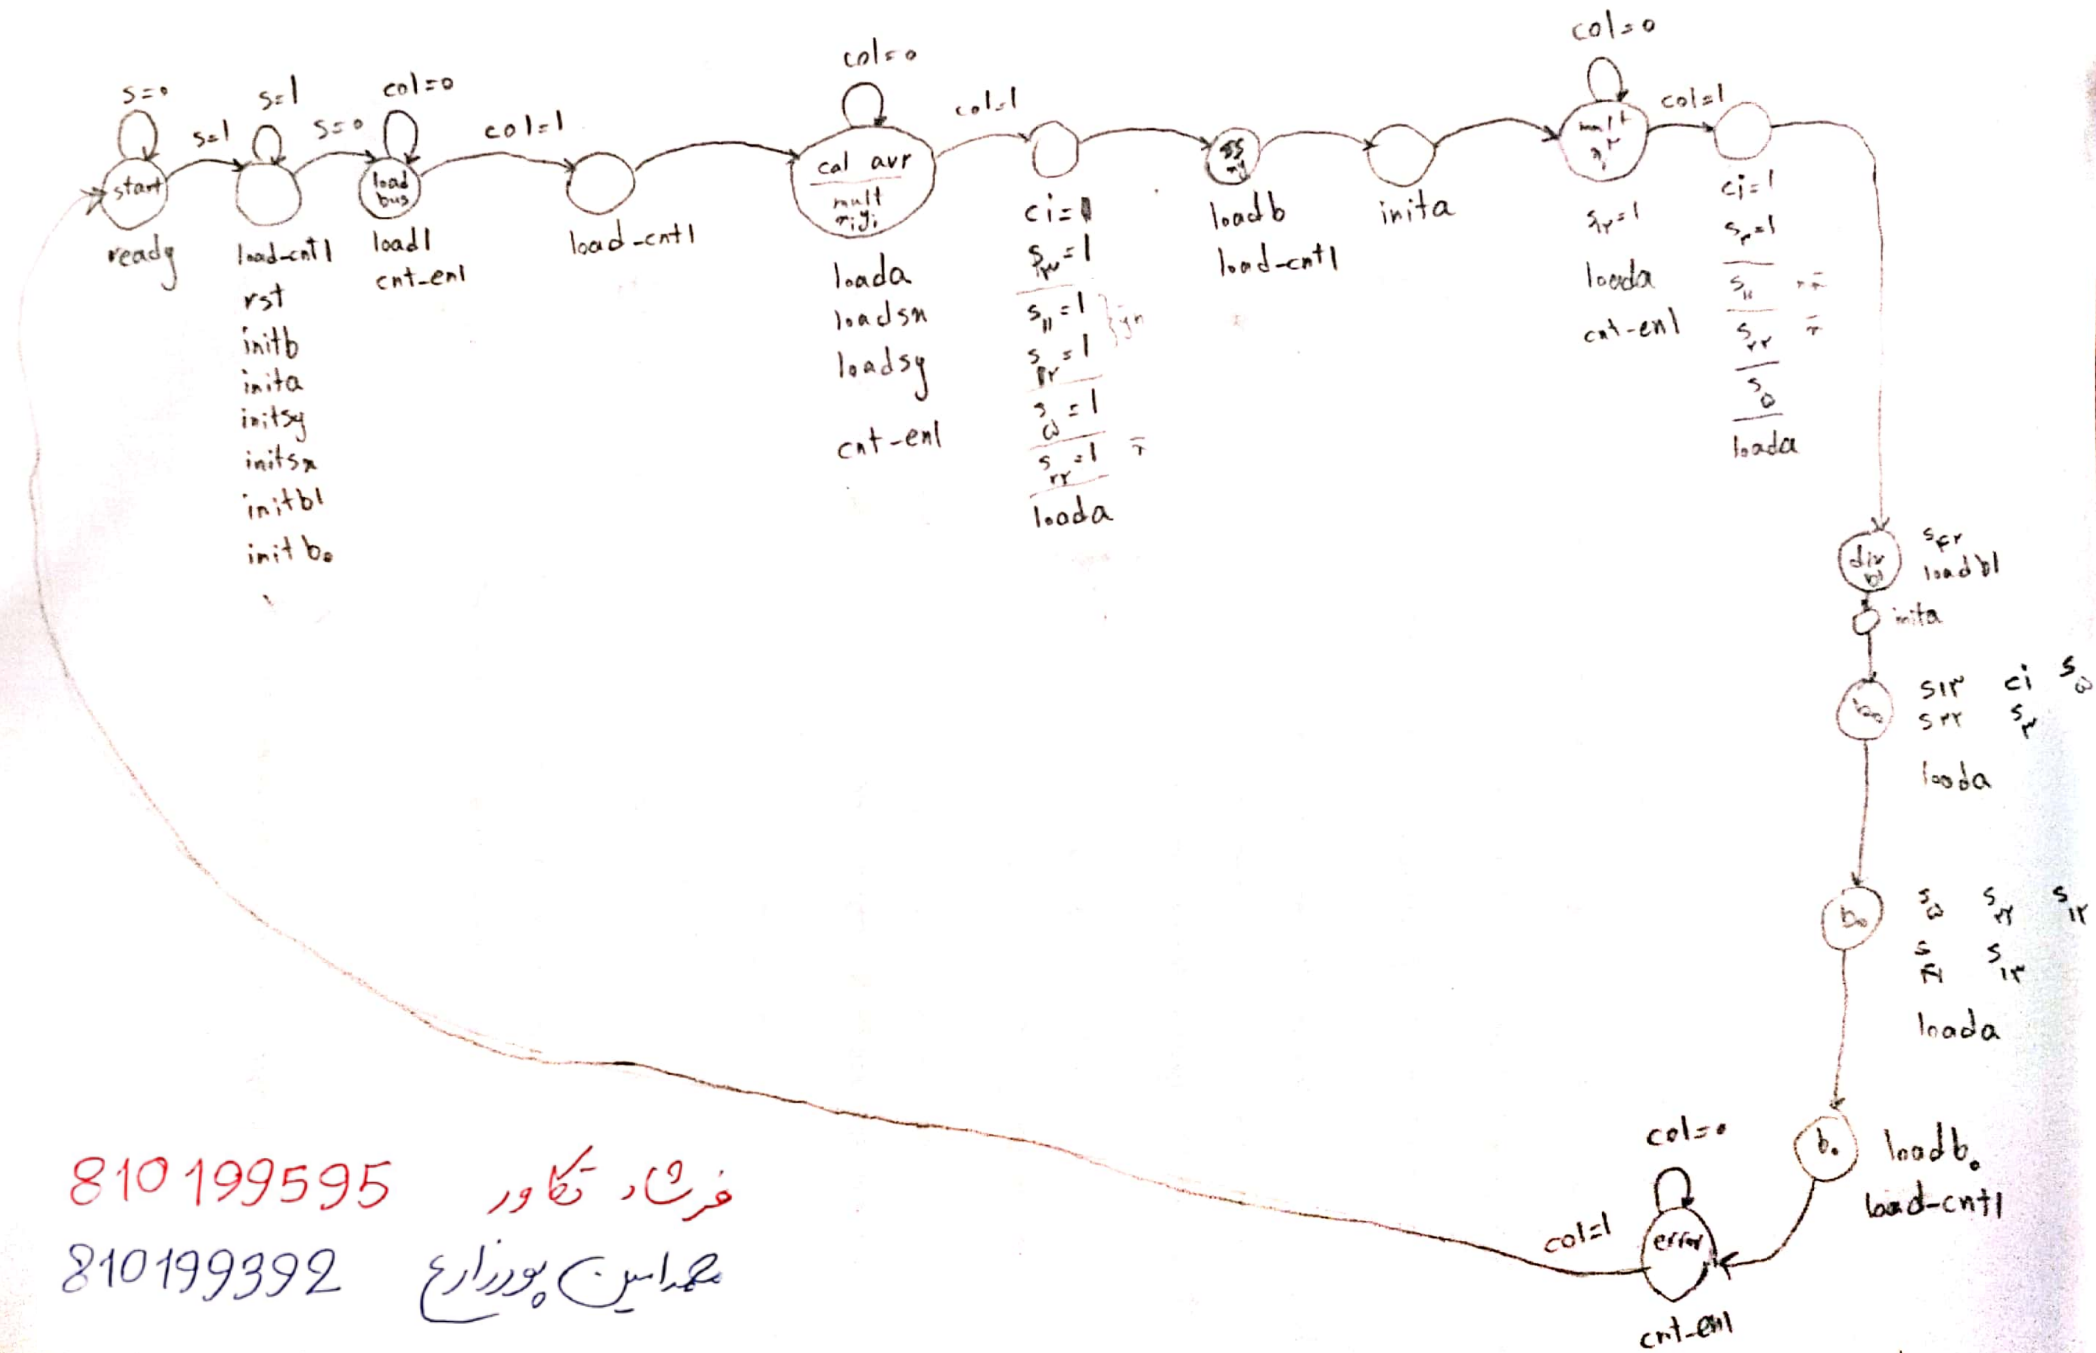 s=0
s=1
s=1
s=0
col=0
col=1
col=0
col=1
col=0
col=1
start
ready
load-cnt1
rst
initb
inita
initsy
initsx
initb1
initb0
load
bus
load1
cnt-en1
load-cnt1
cal avr
mult
xiyi
loada
loadsx
loadsy
cnt-en1
ci=1
s۱۱=1
s۵=1
s۲۲=1
loada
loadb
load-cnt1
inita
mult
loada
cnt-en1
ci=1
s۱۱
s۲۲
s۵
loada
div
b1
s۴۲
loadb1
inita
s۱۳ ci s۵
s۲۲
loada
b0
s۵ s۲۲ s۱۲
s۱۳
loada
b0
loadb0
load-cnt1
col=0
col=1
error
cnt-en1
810199595 فرشاد تکاور
810199392 محمدامین پورزارع